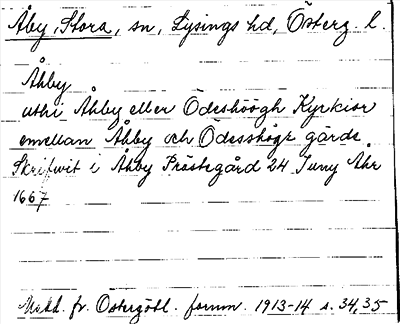 Åby, Stora, sn, Lysings hd, Österg. l.
Åhby
uthi Åhby eller Ödeshöögh Kyrkior
emellan Åhby och Ödesshögz gårds
Skrifwit i Åhby Prästegård 24 Juny Åhr
1667
Medd. fr. Östergötl. fornm. 1913-14 s. 34,35